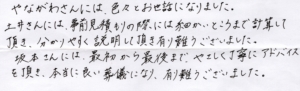 やながわさんには、色々とお世話になりました。
土井さんには、事前見積もりの際には細かいところまで計算して
頂き、分かりやすく説明して頂き有り難うございました。
坂本さんには、最初から最後まで、やさしく丁寧にアドバイス
を頂き、本当に良い葬儀になり、有り難うございました。